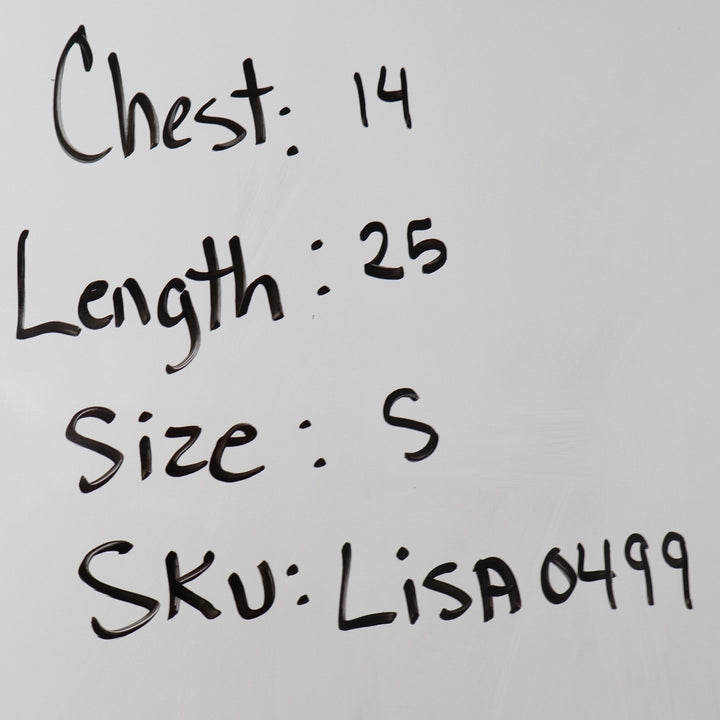 Chest: 14
Length: 25
Size: S
SKU: LiSA0499